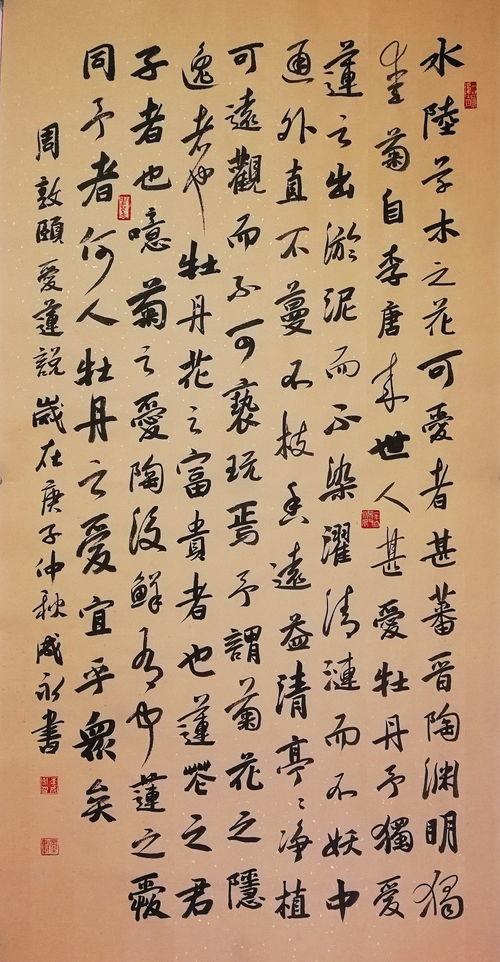 水陸草木之花可愛者甚蕃晋陶渊明獨
愛菊自李唐来世人甚愛牡丹予獨愛
蓮之出淤泥而不染濯清漣而不妖中
通外直不蔓不枝香遠益清亭〻净植
可遠觀而不可褻玩焉予謂菊花之隱
逸者也牡丹花之富貴者也蓮花之君
子者也噫菊之愛陶後鮮有聞蓮之愛
同予者何人牡丹之愛宜乎衆矣
周敦頤愛蓮説歲在庚子仲秋成永書